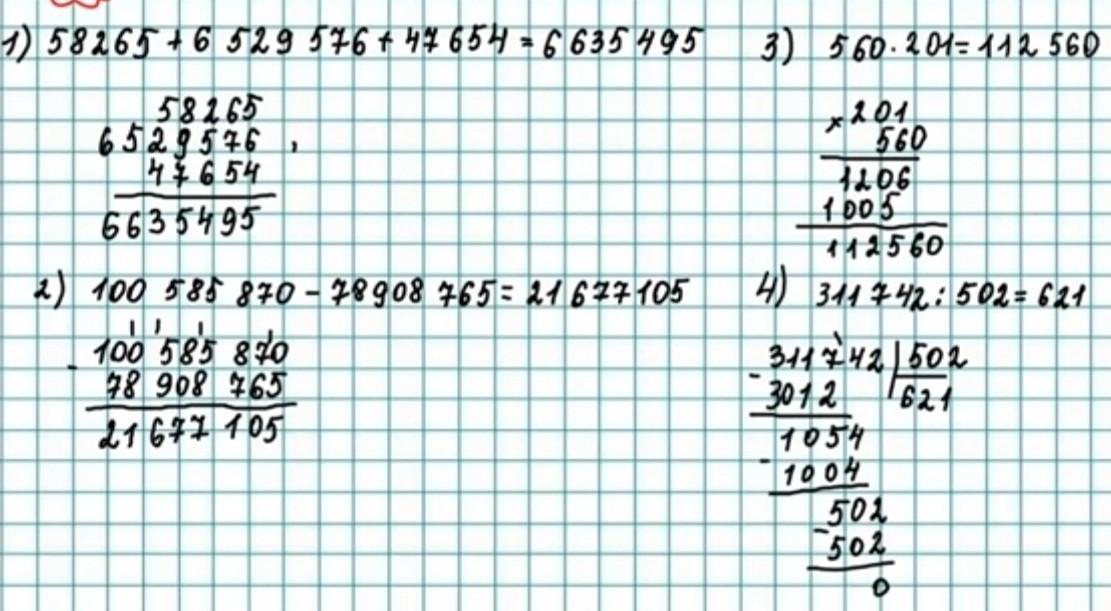 1) 58265 + 6 529 576 + 47654 = 6635495
58265
6529576 ,
47654
6635495
2) 100 585 870 - 78908 765 = 21677105
- 100 585 870
78 908 765
21 677 105
3) 560 · 201 = 112 560
× 201
560
1206
1005
112560
4) 311742 : 502 = 621
- 311742 | 502
3012 | 621
1054
- 1004
502
- 502
0